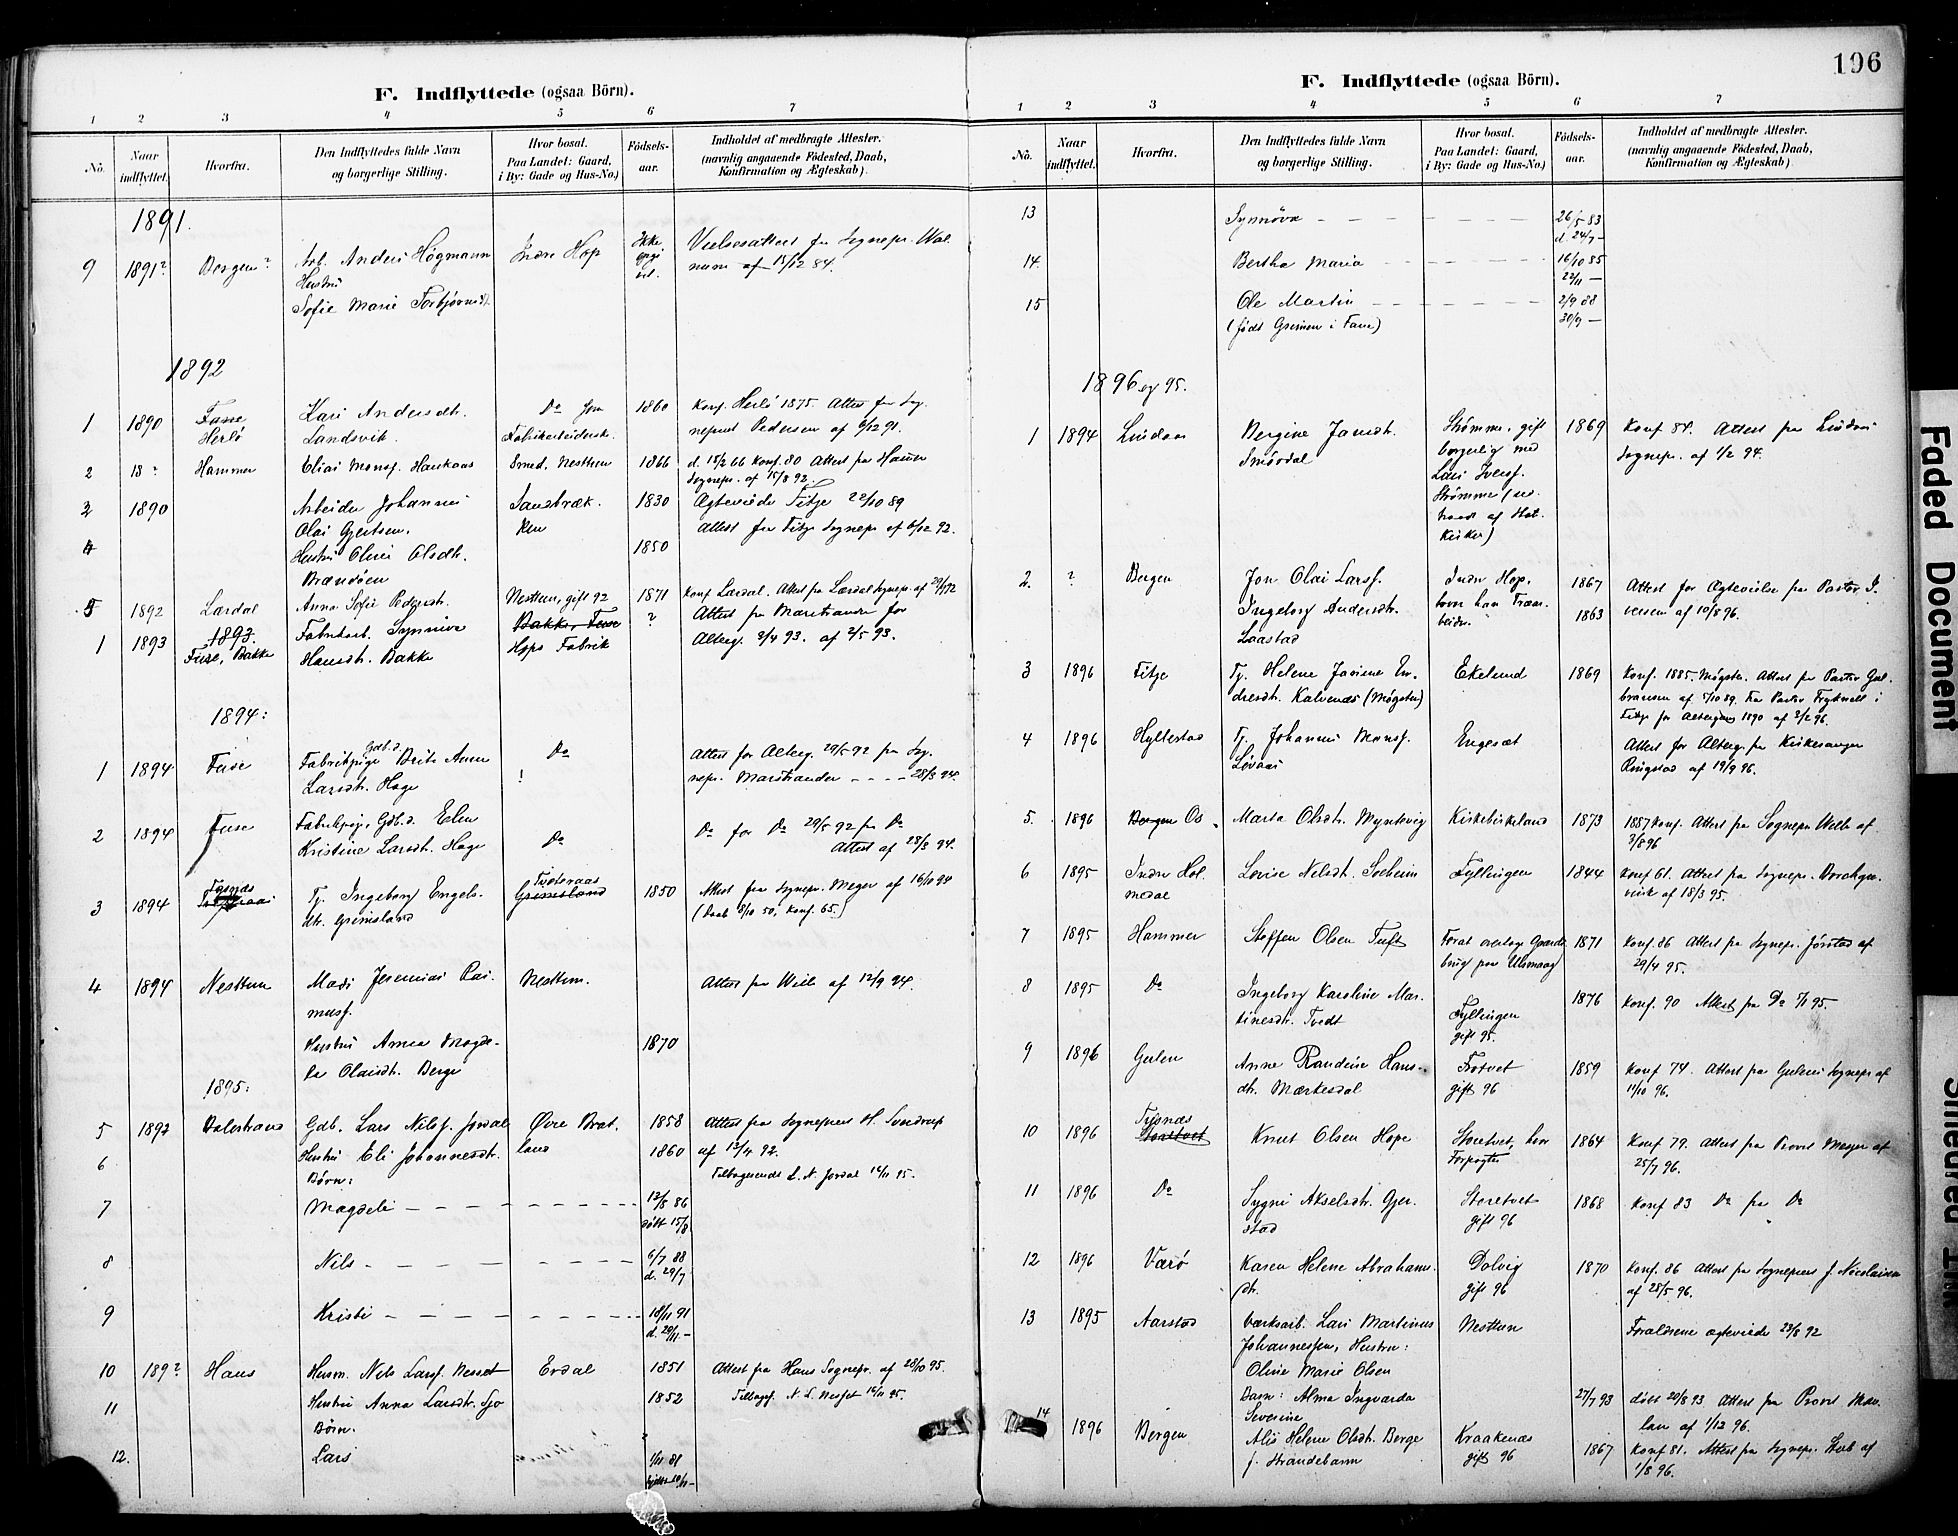 196
F. Indflyttede (ogsaa Börn).
1 2 3 4 5 6 7
No.
Naar indflyttet.
Hvorfra.
Den Indflyttedes fulde Navn
og borgerlige Stilling.
Hvor bosat.
Paa Landet: Gaard,
i By: Gade og Hus-No.)
Födsels-
aar.
Indholdet af medbragte Attester.
(navnlig angaaende Födested, Daab,
Konfirmation og Ægteskab)
1891.
9 1891? Bergen? Arb. Anders Högmann Indre Hop Ikke
Hustru
Sofie Marie Torbjörnsd.
af 15/12 84.
1892
1 1890 Fane Kari Andersdt. Do 1860 Konf. Herlö 1875. Attest fra Sog-
Herlö Landsvik. nepræst Pedersen af 6/12 91.
2 18 ? Hammer Elias Monss. Haukaas Smed, Nesttun 1866 d. 15/2 66 Konf. 80 Attest fra Hammer
Sognepr. af 15/8 92.
3 1890 Arbeider Johannes 1830 Ægteviede Fitje 22/10 89
Olai Gjertsen. Attest fra Fitje Sognepr. af 6/12 92.
4 Hustru Oline Olsdt. 1850
Brændöen
5 1892 Lærdal Anna Sofie Pedersdt. Nesttun, gift 92 1871 Konf Lærdal. Attest fra Lærdal Sognepr. af
1893.
1 1893 Fuse, Bakke Fabrikarb. Synnive Bakke, Fuse ? Attest fra Marstrander for
Hansdt. Bakke Hops Fabrik Alberg. 2/4 93. af 2/5 93.
1894:
1 1894 Fuse Fabrikpige Gdb.d. Brite Anna Do Attest for Alberg. 29/5 92 fra Sog-
Larsdt. Hage nepr. Marstrander - - - - 28/3 94.
2 1894 Fuse Fabrikpige, Gdb.d. Elen Do Do for Do 29/5 92 fra Do
Kristine Larsdt. Hage Attest af 28/3 94.
3 1894 Tysnæs Tj. Ingeborg Engels- Tveteraas 1850 Attest fra Sognepr. Meyer af 16/10 94
dtr. Grimsland Grimsland (Daab 8/10 50, Konf. 65.)
4 1894 Nesttun Mads Jeremias Ras- Nesttun. Attest fra Wielb af 12/9 94.
muss.
Hustru Anna Magde- 1870
le Olaisdt. Berge
1895:
5 1892 Balestrand Gdb. Lars Nilss. Jordal Øvre Brat- 1858 Attest fra Sognepræst H. Svendrup
6 Hustru Eli Johannesdt. land 1860 af 12/4 92.
Börn: Tilbagesendt L. N. Jordal 14/11 95.
7 Magdeli - - - - 12/8 86
döbt 15/8
8 Nils - - - - 6/7 88
d. 29/7
9 Kristi - - - - 18/11 91
d. 20/11 -
10 189? Haus Husm. Nils Larss. Nesset Erdal 1851 Attest fra Haus Sognepr. af 28/10 95.
11 Hustru Anna Larsdt. Sjo 1852 Tilbages. N. L. Nesset 14/11 95.
Börn.
12. Lars 1/11 81
F. Indflyttede (ogsaa Börn).
1 2 3 4 5 6 7
No.
Naar indflyttet.
Hvorfra.
Den Indflyttedes fulde Navn
og borgerlige Stilling.
Hvor bosat.
Paa Landet: Gaard,
i By: Gade og Hus-No.)
Födsels-
aar.
Indholdet af medbragte Attester.
(navnlig angaaende Födested, Daab,
Konfirmation og Ægteskab)
13 Synnöva - - - - 26/5 83
d. 24/7 -
14. Bertha Maria - - - - 16/10 85
22/11 -
15 Ole Martin - - - - 2/9 88
(födt Grimen i Fane) 30/9 -
1896 og 95.
1 1894 Lindaas Bergine Jansdt. Strömme, gift 1869 Konf 84. Attest fra Lindaas
borgerlig med Sognepr. af 1/2 94.
Lars Iverss.
Strömme (ud-
traadt af Stat-
kirken)
2. ? Bergen Jon Olai Larss. Indre Hop, 1867 Attest for Ægtevielse fra Pastor I-
Ingeborg Andersdt. 1863 versen af 10/8 96.
Laastad
3 1896 Fitje Tj. Helene Janine En- Ekelund 1869 Konf. 1885. Mögster. Attest fra Pastor Gul-
dresdt. Kalvenæs (Mögster) bransen af 5/10 89. Fra Pastor Frydenvell i
Fitje for 1890 af 3/2 96.
4 1896 Hyllestad Tj. Johannes Monss. Engesæt Attest for Alberg. fra Kirkesanger
Lövaas Ringstad af 19/9 96.
5. 1896 Bergen Os Marta Olsdt. Myntevig Kirkebirkeland 1873 1887 Konf. Attest fra Sognepr. af
3/8 96
6 1895 Indre Hol- Lovise Nilsdt. Soeheim Fyllingen 1844 Konf 61. Attest fra Sognepr.
medal af 18/3 95.
7 1895 Hammer Steffen Olsen Tuft 1871 Konf. 86 Attest fra Sognepr. Jörstad af
brug paa Ulsmaag 29/4 95.
8 1895 Do Ingeborg Karoline Mar- Fyllingen 1876 Konf. 90 Attest fra Do 5/11 95.
tinesdt. Tvedt gift 95.
9 1896 Gulen Anne Randine Hans- Frotvet 1859 Konf 74. Attest fra Gulens Sognepr. af
dt. Mærkesdal gift 96 11/10 96.
10 1896 Tysnæs Knut Olsen Hope Storetvet, hos 1864 Konf 79. Attest fra Provst Meyer af
Storetvet Forpagter 25/7 96.
11 1896 Do Sygni Akselsdt. Gjer- Storetvet 1868 Konf 83 Do fra Do
stad gift 96
12 1896 Værö Karen Helene Abrahams- Dolvig 1870 Konf. 86 Attest fra Sognepræst J. Nicolaisen
dt. gift 96 af 28/5 96.
13 1895 Aarstad Værksarb. Lars Martinus Nesttun Forældrene ægteviede 23/8 92
Johannessen, Hustru:
Oline Marie Olsen
Barn: Alma Ingvarda 27/7 93 döbt 20/8 93 Attest fra Provst
Severine af 1/12 96.
14 1896 Bergen Alis Helene Olsdt. Berge Kraakenæs 1867 Konf 81. Attest fra Sognepr. af
f. Strandebarm gift 96 1/8 96.
Faded Document